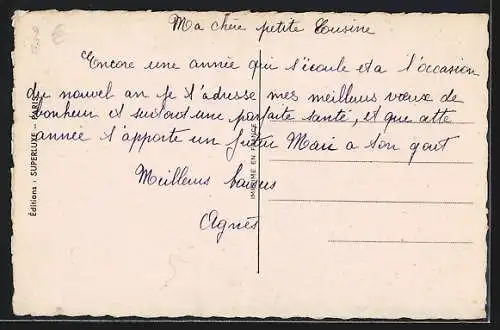 Ma chère petite Cousine
Encore une année qui s'écoule et a l'occasion
du nouvel an je t'adresse mes meilleurs vœux de
bonheur et surtout une parfaite santé, et que cette
année t'apporte un futur Mari a son gout
Meilleurs baisers
Agnès
Editions : SUPERLUXE - PARIS
IMPRIMÉ EN FRANCE